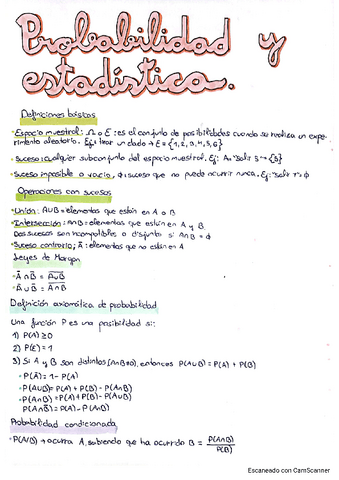 Probabilidad y
estadística.
Definiciones básicas
• Espacio muestral: Ω o E: es el conjunto de posibilidades cuando se realiza un expe-
rimento aleatorio. Ej: tirar un dado → E = {1,2,3,4,5,6}
• Suceso: cualquier subconjunto del espacio muestral. Ej: A= "salir 5" → {5}
• Suceso imposible o vacío, ϕ: suceso que no puede ocurrir nunca. Ej: "salir 7": ϕ
Operaciones con sucesos
• Unión: A∪B = elementos que están en A o B
• Intersección: A∩B: elementos que están en A y B
Dos sucesos son incompatibles o disjuntos si A∩B = ϕ
• Suceso contrario; Ā: elementos que no están en A
Leyes de Morgan
• Ā ∩ B̄ = \overline{A∪B}
• Ā ∪ B̄ = \overline{A∩B}
Definición axiomática de probabilidad
Una función P es una posibilidad si:
1) P(A) ≥ 0
2) P(E) = 1
3) Si A y B son distintos (A∩B=ϕ), entonces P(A∪B) = P(A) + P(B)
• P(Ā) = 1 - P(A)
• P(A∪B) = P(A) + P(B) - P(A∩B)
• P(A∩B) = P(A) + P(B) - P(A∪B)
P(A∩B̄) = P(A) - P(A∩B)
Probabilidad condicionada
• P(A/B) → ocurra A, sabiendo que ha ocurrido B = P(A∩B)
P(B)
Escaneado con CamScanner